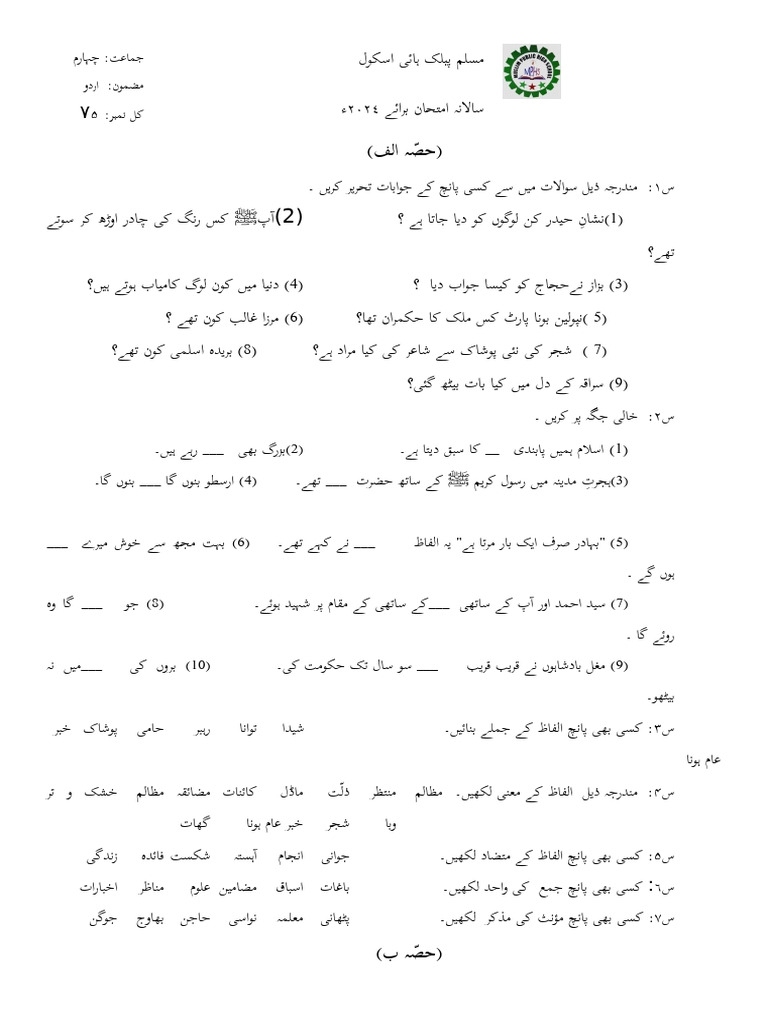 مسلم پبلک ہائی اسکول جماعت: چہارم
مضمون: اردو
سالانہ امتحان برائے ۲۰۲۴ء کل نمبر: ۷۵
(حصّہ الف)
س۱: مندرجہ ذیل سوالات میں سے کسی پانچ کے جوابات تحریر کریں ۔
(1)نشانِ حیدر کن لوگوں کو دیا جاتا ہے ؟ (2)آپﷺ کس رنگ کی چادر اوڑھ کر سوتے
تھے؟
(3) بزاز نےحجاج کو کیسا جواب دیا ؟ (4) دنیا میں کون لوگ کامیاب ہوتے ہیں؟
(5 )نپولین بونا پارٹ کس ملک کا حکمران تھا؟ (6) مرزا غالب کون تھے ؟
(7 ) شجر کی نئی پوشاک سے شاعر کی کیا مراد ہے؟ (8) بریدہ اسلمی کون تھے؟
(9) سراقہ کے دل میں کیا بات بیٹھ گئی؟
س۲: خالی جگہ پر کریں ۔
(1) اسلام ہمیں پابندی __ کا سبق دیتا ہے۔ (2)بزرگ بھی ___ رہے ہیں۔
(3)ہجرتِ مدینہ میں رسول کریم ﷺ کے ساتھ حضرت ___ تھے۔ (4) ارسطو بنوں گا ___ بنوں گا۔
(5) "بہادر صرف ایک بار مرتا ہے" یہ الفاظ ___ نے کہے تھے۔ (6) بہت مجھ سے خوش میرے ___
ہوں گے ۔
(7) سید احمد اور آپ کے ساتھی ___کے ساتھی کے مقام پر شہید ہوئے۔ (8) جو ___ گا وہ
روئے گا ۔
(9) مغل بادشاہوں نے قریب قریب ___ سو سال تک حکومت کی۔ (10) بروں کی ___میں نہ
بیٹھو۔
س۳: کسی بھی پانچ الفاظ کے جملے بنائیں۔ شیدا توانا رہبر حامی پوشاک خبر
عام ہونا
س۴: مندرجہ ذیل الفاظ کے معنی لکھیں۔ مظالم منتظر ذلّت ماڈل کائنات مضائقہ مظالم خشک و تر
وبا شجر خبر عام ہونا گھات
س۵: کسی بھی پانچ الفاظ کے متضاد لکھیں۔ جوانی انجام آہستہ شکست فائدہ زندگی
س۶: کسی بھی پانچ جمع کی واحد لکھیں۔ باغات اسباق مضامین علوم مناظر اخبارات
س۷: کسی بھی پانچ مؤنث کی مذکر لکھیں۔ پٹھانی معلمہ نواسی حاجن بھاوج جوگن
(حصّہ ب)